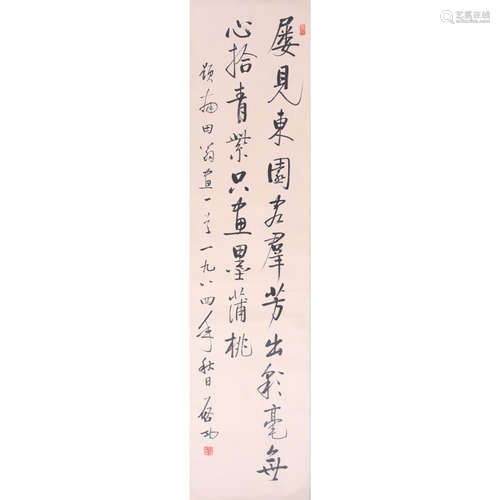 屡見東園客羣芳出彩毫無
心拾青紫只畫墨蒲桃
題梅田翁畫一首一九八四年秋日启功